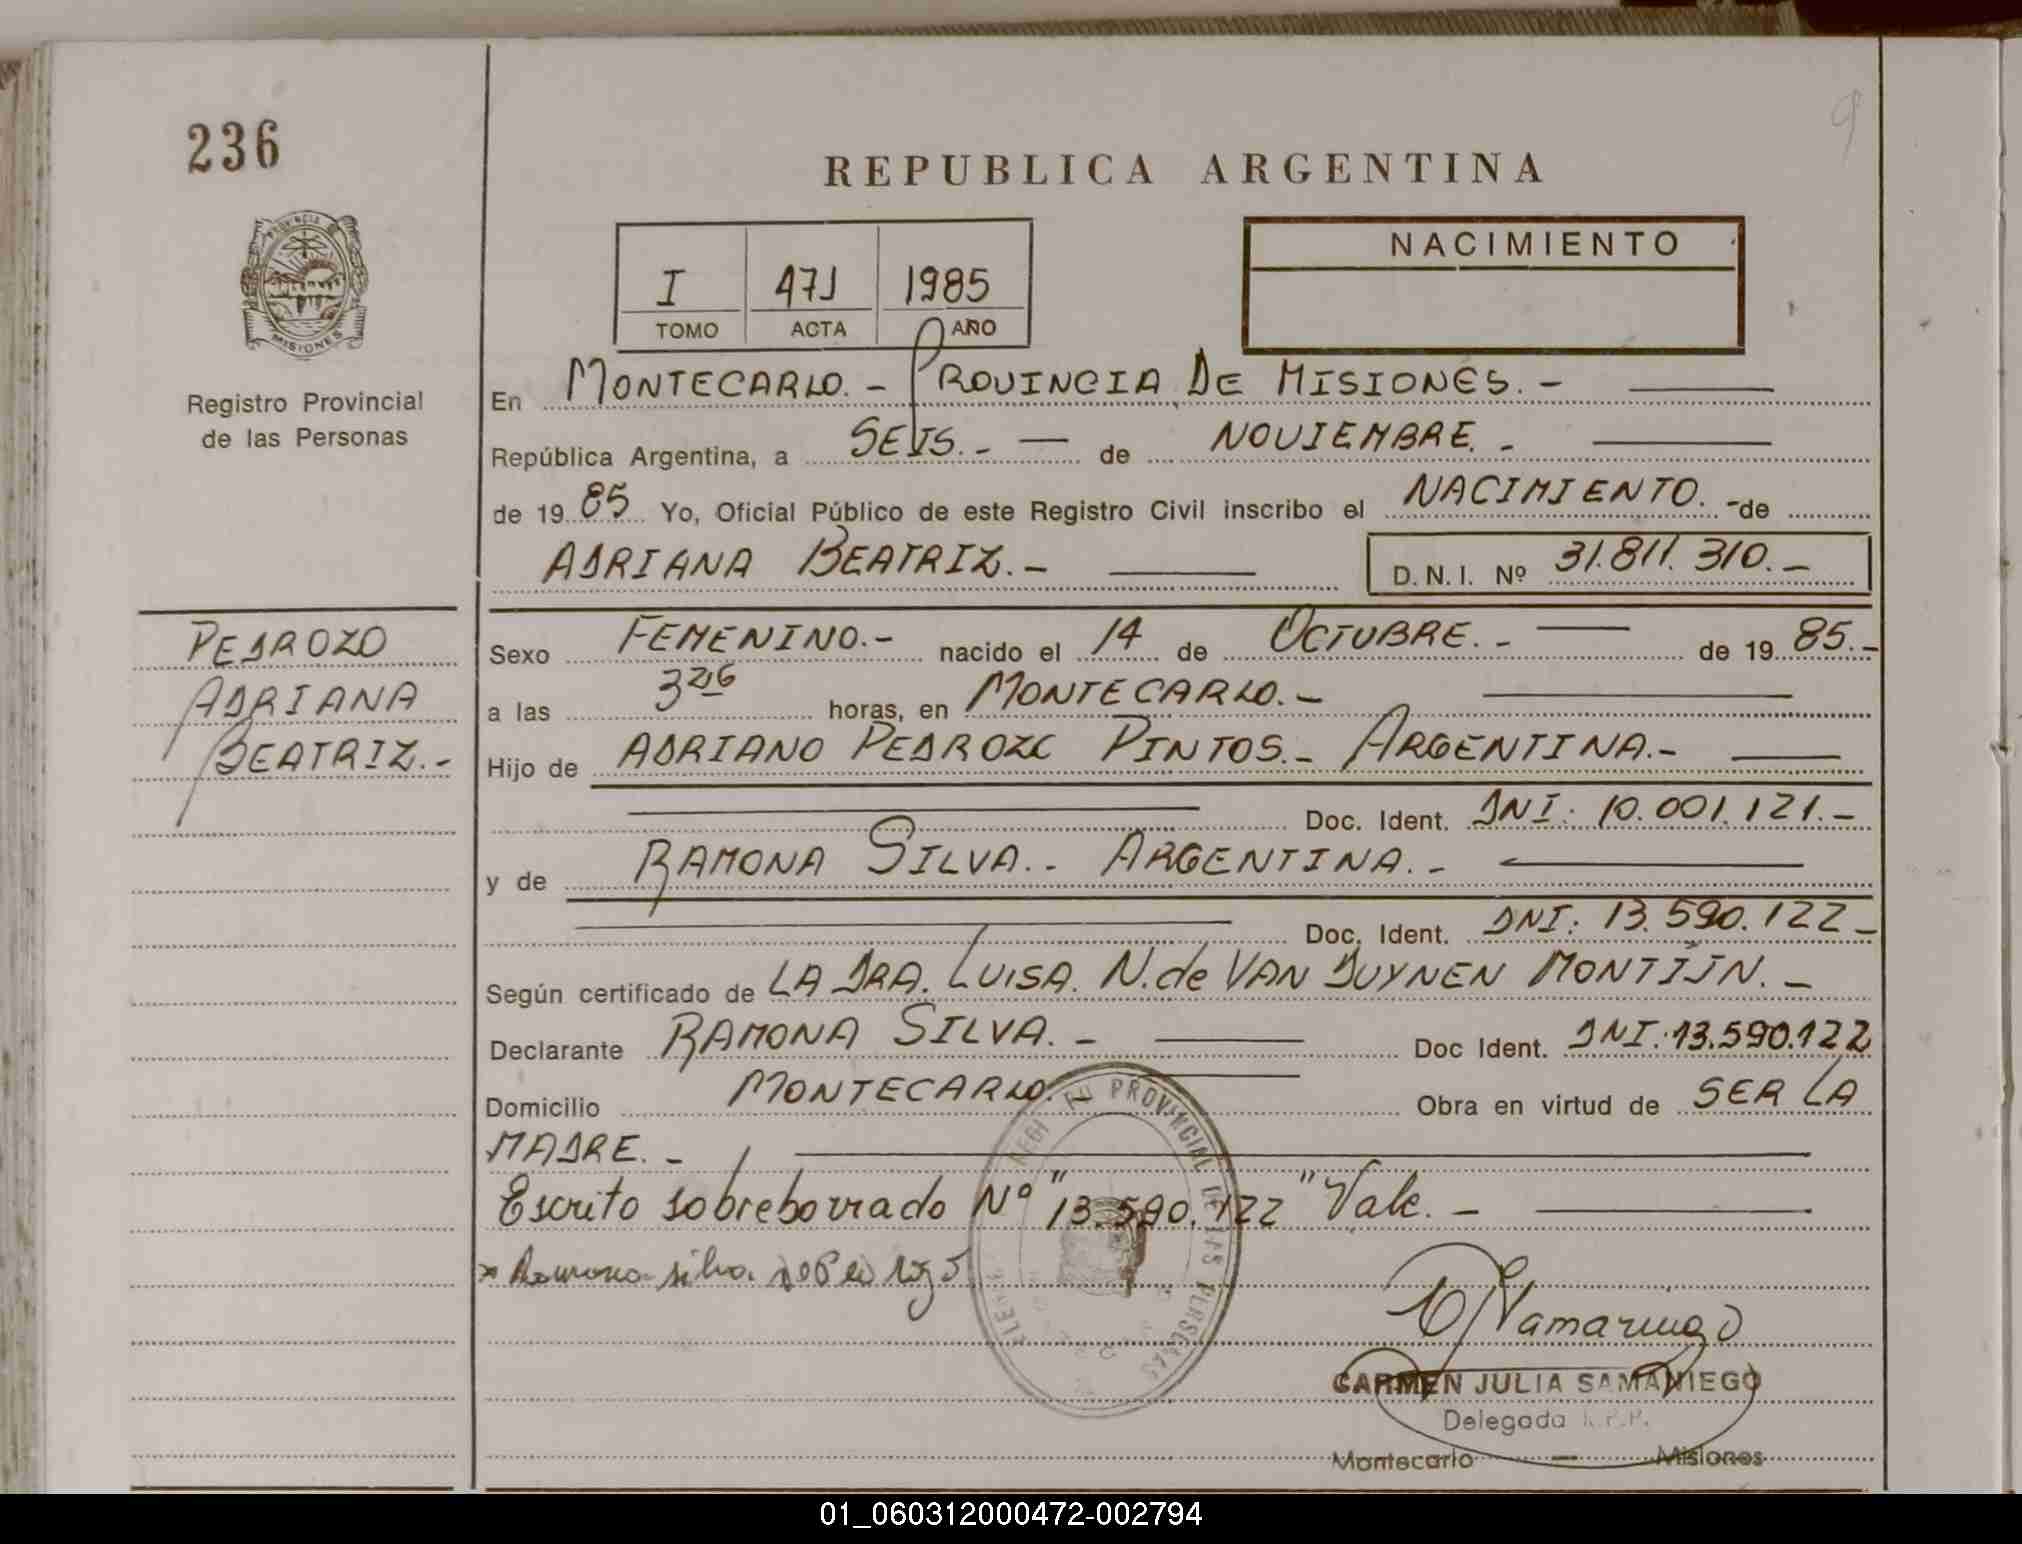 236
9
REPUBLICA ARGENTINA
PROVINCIA
MISIONES
Registro Provincial
de las Personas
I 471 1985
TOMO ACTA AÑO
NACIMIENTO
En MONTECARLO.- PROVINCIA DE MISIONES.-
República Argentina, a SEIS.- de NOVIEMBRE.-
de 1985 Yo, Oficial Público de este Registro Civil inscribo el NACIMIENTO.- de
ADRIANA BEATRIZ.- D.N.I. Nº 31.811.310.-
PEDROZO
ADRIANA
BEATRIZ.-
Sexo FEMENINO.- nacido el 14 de OCTUBRE.- de 1985.-
a las 3 horas, en MONTECARLO.-
Hijo de ADRIANO PEDROZO PINTOS.- ARGENTINA.-
Doc. Ident. DNI: 10.001.121.-
y de RAMONA SILVA.- ARGENTINA.-
Doc. Ident. DNI: 13.590.122-
Según certificado de LA DRA. LUISA. N. de VAN DUYNEN MONTIJN.-
Declarante RAMONA SILVA.- Doc Ident. DNI: 13.590.122
Domicilio MONTECARLO.- Obra en virtud de SER LA
MADRE.-
Escrito sobreborrado Nº "13.590.122" Vale.-
* Ramona silva de Pedrozo
PROVINCIAL DE LAS PERSONAS
CARMEN JULIA SAMANIEGO
Delegada R.P.P.
Montecarlo — Misiones
01_060312000472-002794